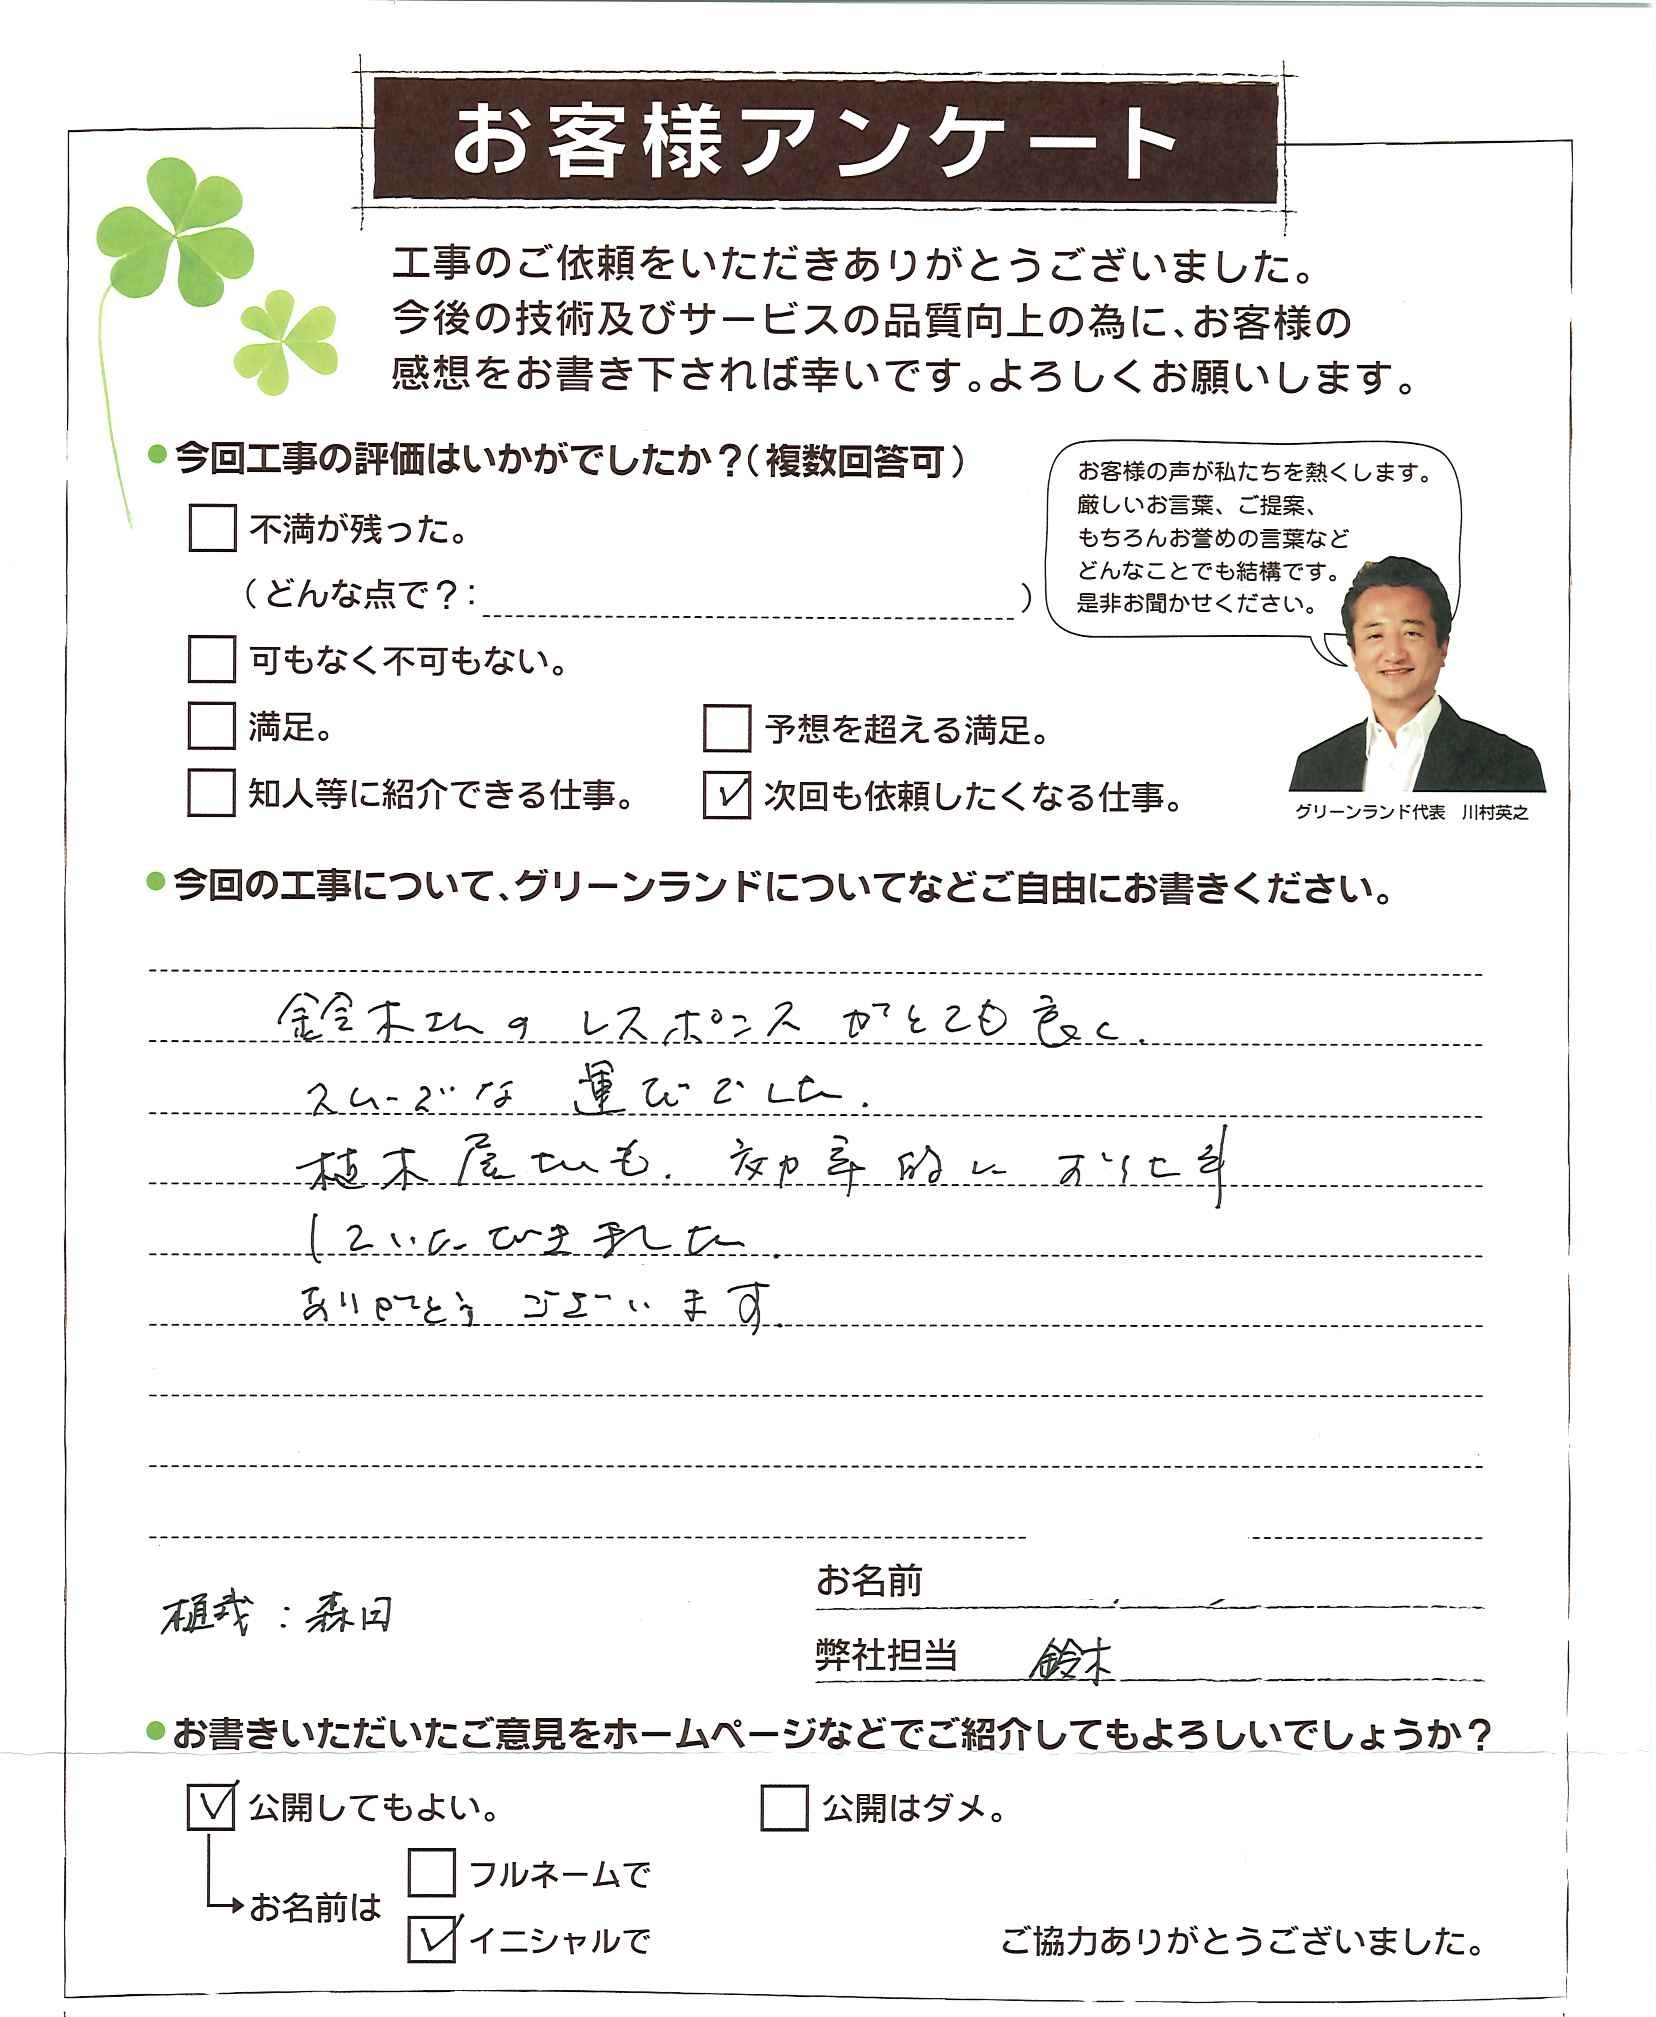 お客様アンケート
工事のご依頼をいただきありがとうございました。
今後の技術及びサービスの品質向上の為に、お客様の
感想をお書き下されば幸いです。よろしくお願いします。
●今回工事の評価はいかがでしたか?(複数回答可)
不満が残った。
(どんな点で?: )
可もなく不可もない。
満足。
予想を超える満足。
知人等に紹介できる仕事。
次回も依頼したくなる仕事。
お客様の声が私たちを熱くします。
厳しいお言葉、ご提案、
もちろんお誉めの言葉など
どんなことでも結構です。
是非お聞かせください。
グリーンランド代表 川村英之
●今回の工事について、グリーンランドについてなどご自由にお書きください。
鈴木さんのレスポンスがとても良く.
スムーズな運びでした.
植木屋さんも.効率的に
していただきました.
ありがとうございます.
植栽:森田
お名前
弊社担当 鈴木
●お書きいただいたご意見をホームページなどでご紹介してもよろしいでしょうか?
公開してもよい。
公開はダメ。
お名前は
フルネームで
イニシャルで
ご協力ありがとうございました。